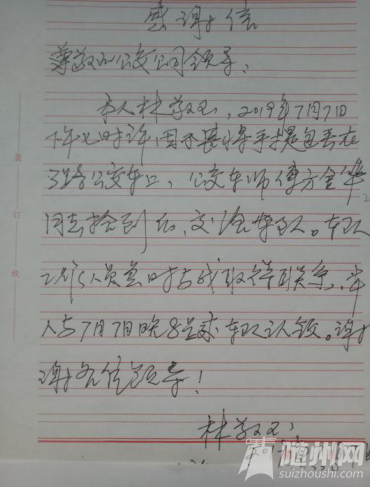 感谢信
尊敬的公交公司领导:
本人林敬玉,2019年7月7日
下午七时许,因不慎将手提包丢在
3路公交车上,公交车师傅方金华
同志捡到后,交给车队。车队
工作人员及时与我取得联系,本
人于7月7日晚8点来车队认领。谢
谢各位领导!
林敬玉
随州网
suizhoushi.com